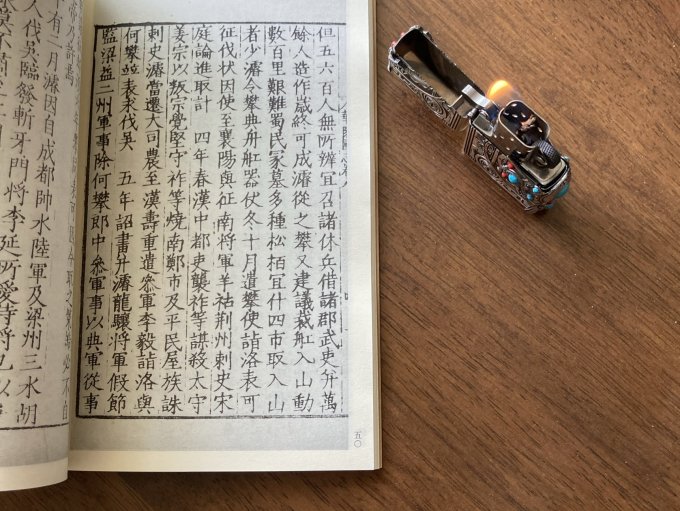 但五六百人無所辨宜召諸休兵借諸郡武吏并萬
餘人造作歲終可成濬從之攀又建議裁舡入山動
數百里艱難蜀民冢墓多種松柏宜什四市取入山
者少濬令攀典舟舡器仗冬十月遣攀使詣洛表可
征伐狀因使至襄陽與征南將軍羊祜荆州刺史宋
庭論進取計　四年春漢中都吏襲祚等謀殺太守
姜宗以叛宗覺堅守祚等燒南鄭市及平民屋族誅
刺史濬當遷大司農至漢壽重遣參軍李毅詣洛與
何攀並表求伐吳　五年詔書升濬龍驤將軍假節
監梁益二州軍事除何攀郎中叅軍事以典軍從事
五〇
有二月濬因自成都帥水陸軍及梁州三水胡
人伐吳臨發斬牙門將李延所愛待將也以